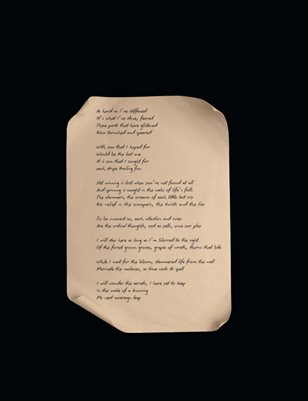 As hard as I've stiffened
It's what I've done, feared
These parts that have glistened
Now tarnished and speared
With you that I hoped for
Would be the last one
It is you that I caught for
each stripe trailing fun
Yet winning is lost when you're not found at all
And spinning is caught in the web of life's
The slammers, the screams of each little
No relief in the scampers, the twists and the lies
To be moored so, each intention and
Are the critical thoughts, cast as
I will stay here as long as I'm blurred to the sight
Of the forest grown graves, grapes of wrath, thorns that bite
While I wait for the bloom, shimmered life from the well
Alternate the madness, as time casts its spell
I will wander the search, I have yet to keep
In the wake of a turning
My next sovereign leap